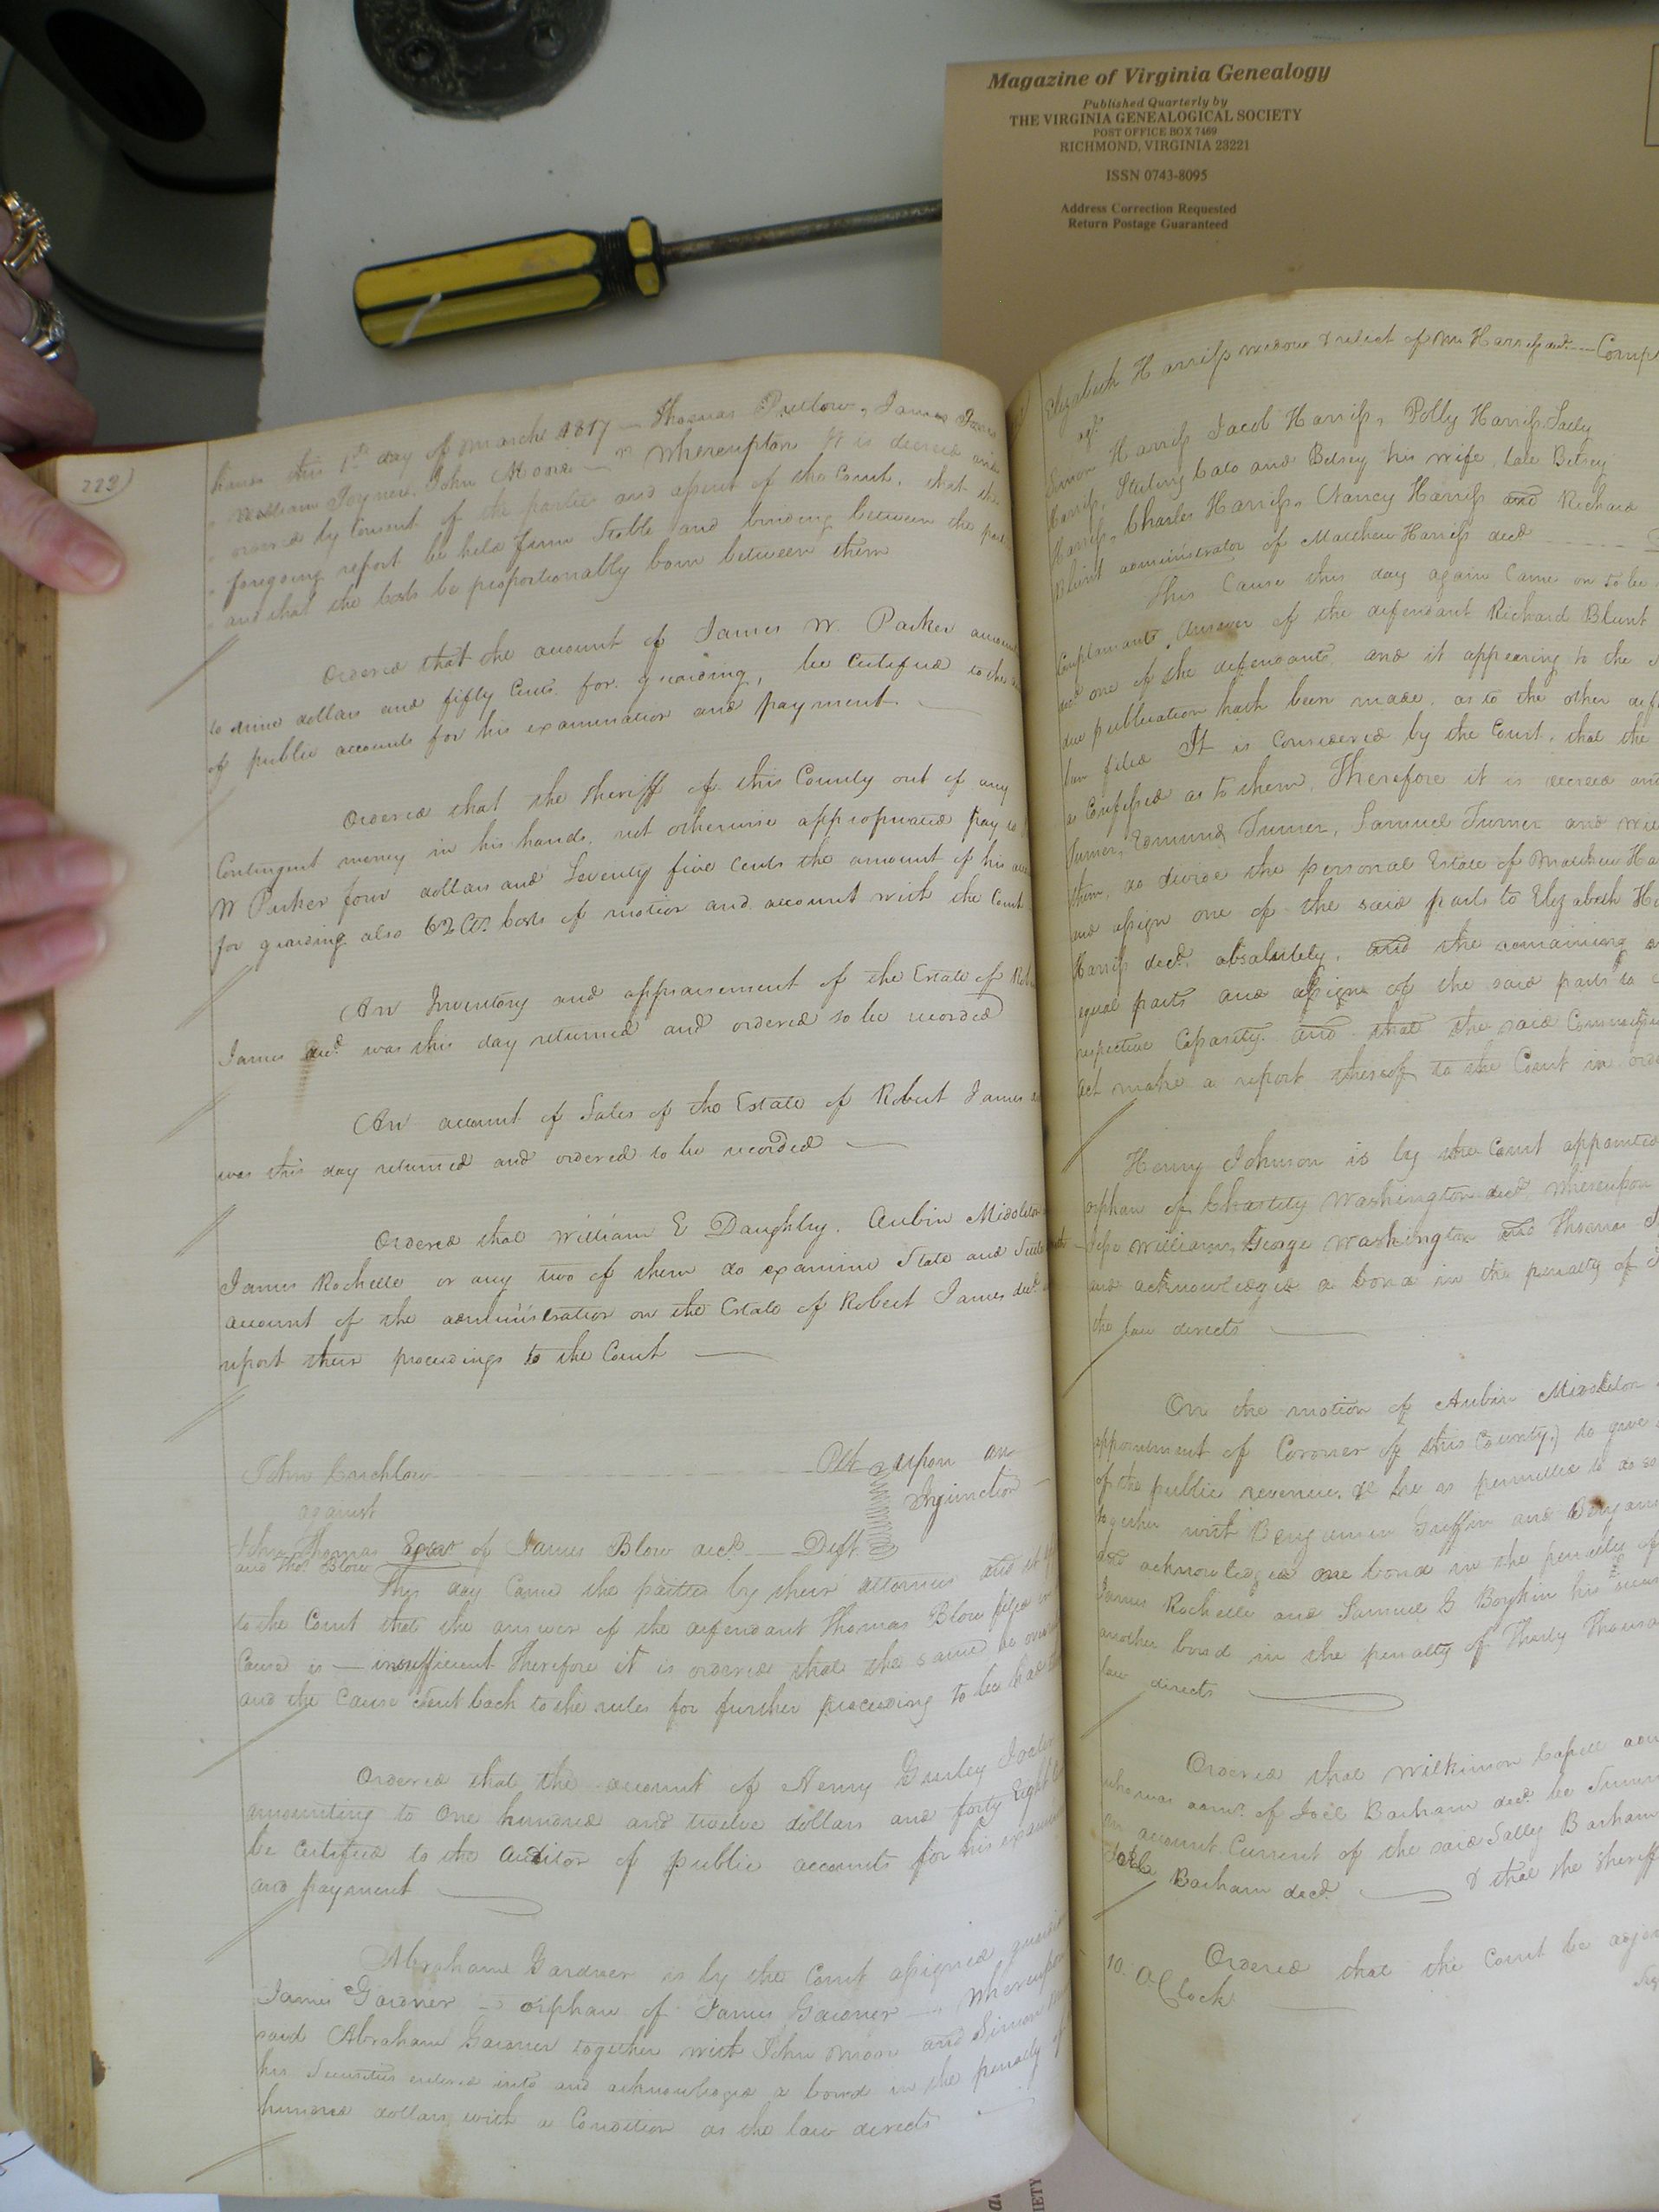 Magazine of Virginia Genealogy
Published Quarterly by
THE VIRGINIA GENEALOGICAL SOCIETY
POST OFFICE BOX 7469
RICHMOND, VIRGINIA 23221
ISSN 0743-8095
Address Correction Requested
Return Postage Guaranteed
223
hands this 1st day of March 1817 — Thomas Pretlow, James
William Joyner, John Moore — " Whereupon It is decreed and
ordered by Consent of the parties and assent of the Court, that the
foregoing report be held firm Stable and binding between the
and that the Costs be proportionably born between them
Ordered that the account of James W. Parker
to nine dollars and fifty Cents for guarding, be Certified to the
of public accounts for his examination and payment
Ordered that the Sheriff of this County out of any
Contingent money in his hands, not otherwise appropriated pay to
W Parker four dollars and Seventy five Cents the amount of his
for guarding also 62 Cts. Costs of motion and account with the Court
An Inventory and appraisement of the Estate of
James decd. was this day returned and ordered to be recorded
An account of Sales of the Estate of Robert James
was this day returned and ordered to be recorded
Ordered that William E Daughtry, Aubin Middleton
James Rochelle or any two of them do examine State and Settle
account of the administration on the Estate of Robert James decd.
report their proceedings to the Court
John Crichlow Plt upon an
against Injunction
John Thomas Exor of James Blow decd. — Deft
and Thos. Blow
This day Came the parties by their attornies and it
to the Court that the answer of the defendant Thomas Blow filed in
Cause is — insufficient Therefore it is ordered that the same be
and the Cause Sent back to the rules for further proceeding to be had
Ordered that the account of Henry Gurley Jailor
amounting to One hundred and twelve dollars and forty Eight
be Certified to the Auditor of public accounts for his
and payment
Abraham Gardner is by the Court assigned
James Gardner — orphan of James Gardner — Whereupon
said Abraham Gardner together with John Moore and Simon
his Securities entered into and acknowledged a bond in the penalty of
hundred dollars with a Condition as the law directs
Elizabeth Harriss widow & relict of Harriss decd. — Comp
agt.
Simon Harriss Jacob Harriss, Polly Harriss, Sally
Harriss, Sterling Cato and Betsey his wife, late Betsey
Harriss, Charles Harriss, Nancy Harriss and Richard
Blunt administrator of Matthew Harriss decd
This Cause this day again Came on to be
Complainants Answer of the defendant Richard Blunt
decd one of the defendants, and it appearing to the
due publication hath been made, as to the other
law filed It is Considered by the Court, that the
as Confessed as to them, Therefore it is decreed and
Turner, Edmund Turner, Samuel Turner and
them, do divide the personal Estate of Matthew
and assign one of the said parts to Elizabeth
Harriss decd. absolutely, and the remaining
equal parts and assign of the said parts to
respective Capasity. and that the said
act make a report thereof to the Court in
Henry Johnson is by the Court appointed
orphan of Chastity Washington decd, whereupon
Williams, George Washington and Thomas
and acknowledged a bond in the penalty of
the law directs
On the motion of Aubin Middleton
appointment of Coroner of this County) to give
of the public revenue, he is permitted to do so
together with Benjamin Griffin and
and acknowledged one bond in the penalty of
James Rochelle and Samuel B Boykin his
another bond in the penalty of Thirty
law directs
Ordered that Wilkinson Capell
who was admr. of Joel Barham decd. be
an account Current of the said Sally Barham
Joel Barham decd. & that the Sheriff
Ordered that the Court be
10 O Clock